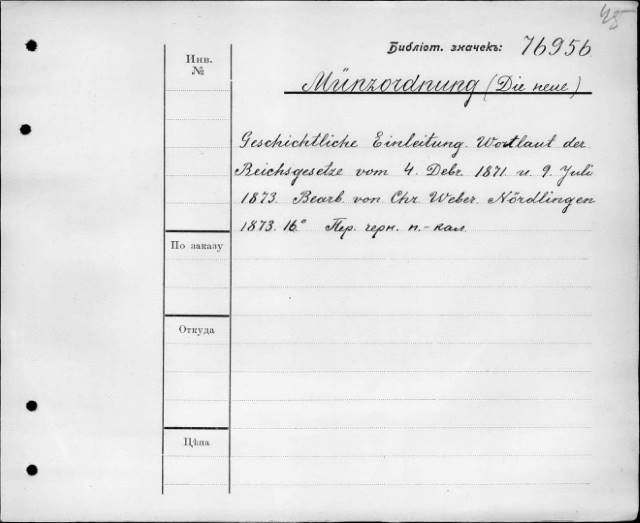 45
Библіот. значекъ: 76956
Инв.
№
Münzordnung (Die neue)
Geschichtliche Einleitung. Wortlaut der
Reichsgesetze vom 4. Debr. 1871 u. 9. Juli
1873. Bearb. von Chr. Weber. Nördlingen
1873. 16.° Пер. черн. п.-кал.
По заказу
Откуда
Цѣна